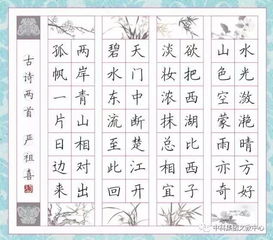 水光潋滟晴方好
山色空濛雨亦奇
欲把西湖比西子
淡妆浓抹总相宜
天门中断楚江开
碧水东流至此回
两岸青山相对出
孤帆一片日边来
古诗两首 严祖喜